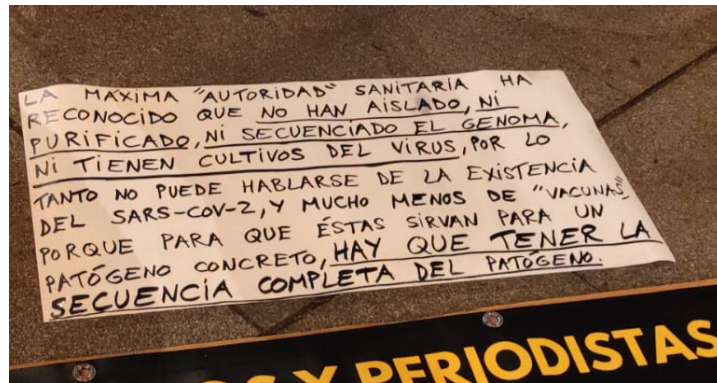 LA MÁXIMA "AUTORIDAD" SANITARIA HA
RECONOCIDO QUE NO HAN AISLADO, NI
PURIFICADO, NI SECUENCIADO EL GENOMA,
NI TIENEN CULTIVOS DEL VIRUS, POR LO
TANTO NO PUEDE HABLARSE DE LA EXISTENCIA
DEL SARS-COV-2, Y MUCHO MENOS DE "VACUNAS"
PORQUE PARA QUE ÉSTAS SIRVAN PARA UN
PATÓGENO CONCRETO, HAY QUE TENER LA
SECUENCIA COMPLETA DEL PATÓGENO.
Y PERIODISTAS